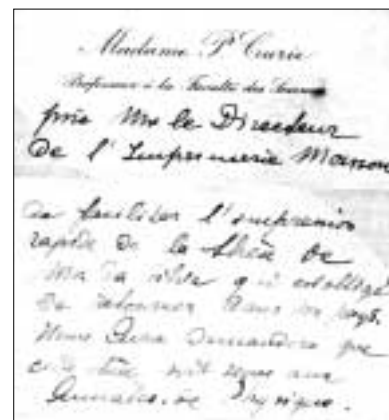 Madame P. Curie
Professeur à la Faculté des Sciences
prie Mr le Directeur
de l'Imprimerie
de faciliter l'impression
rapide de la thèse de
Mr da Silva qui est obligé
de retourner dans son pays.
Nous demandons que
cette thèse soit aux
Annales de Physique.